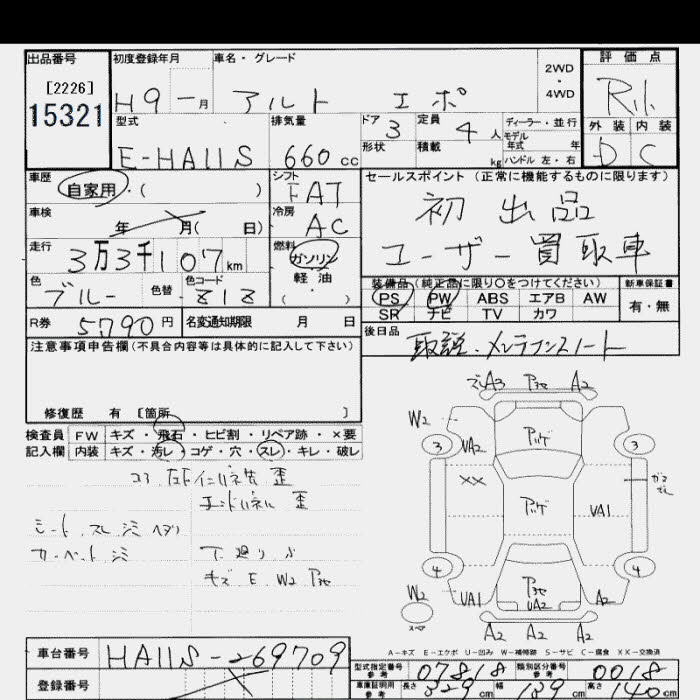 出品番号
[2226]
15321
初度登録年月
H9 - 月
車名・グレード
アルト エポ
2WD
・
4WD
評価点
R1
外装 内装
D C
型式
E-HA11S
排気量
660 cc
ドア 3
形状
定員 4 人
積載 kg
ディーラー・並行
モデル
年式 年
ハンドル 左・右
車歴
自家用・( )
シフト
FAT
車検
年 月( 日)
冷房
AC
走行
3万3千107km
燃料
ガソリン
軽油
( )
色
ブルー
色替
色コード
Z1Z
R券 5790円
名変通知期限 月 日
セールスポイント (正常に機能するものに限ります)
初出品
ユーザー買取車
装備品 (純正品に限り○をつけてください)
PS PW ABS エアB AW
SR ナビ TV カワ
新車保証書
有・無
後日品
取説・メンテナンスノート
注意事項申告欄(不具合内容等は具体的に記入して下さい)
修復歴 有 [箇所 ]
検査員
記入欄
FW キズ・飛石・ヒビ割・リペア跡・×要
内装 キズ・汚レ・コゲ・穴・スレ・キレ・破レ
シート スレ シミ ヘタリ
カーペット シミ
下廻り
キズ E W2
A3 A2
W2
3 VA2 3
XX
VA1
4 4
W2 VA1 VA2 A2
スペア
A2 A2 A2
A-キズ E-エクボ U-凹み W-補修跡 S-サビ C-腐食 XX-交換済
車台番号
HA11S-269709
登録番号
型式指定番号
参考
07818
類別区分番号
参考
0018
車庫証明用
参考
長さ 329 cm 幅 139 cm 高さ 140 cm